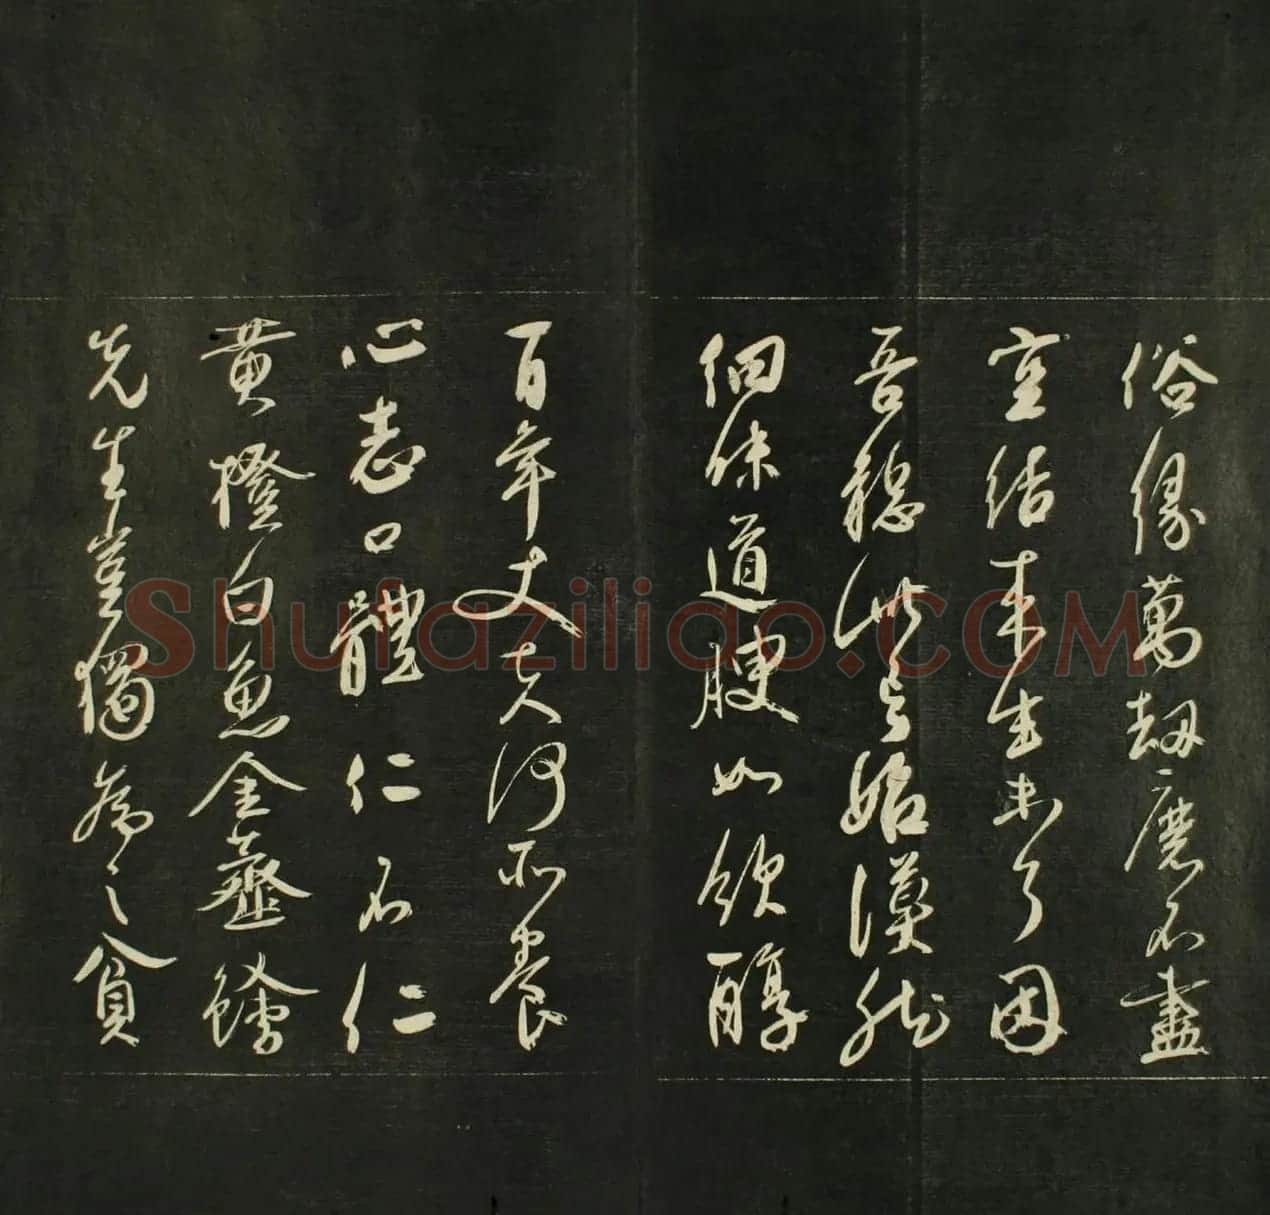 俗緣萬劫磨不盡
空結來生未了因
吾穩此言始然
細味道腴如飲醇
百年丈夫何所養
心志口體仁不仁
黃橙白魚金虀鱠
先生豈獨為之貧
Shufaziliao.COM